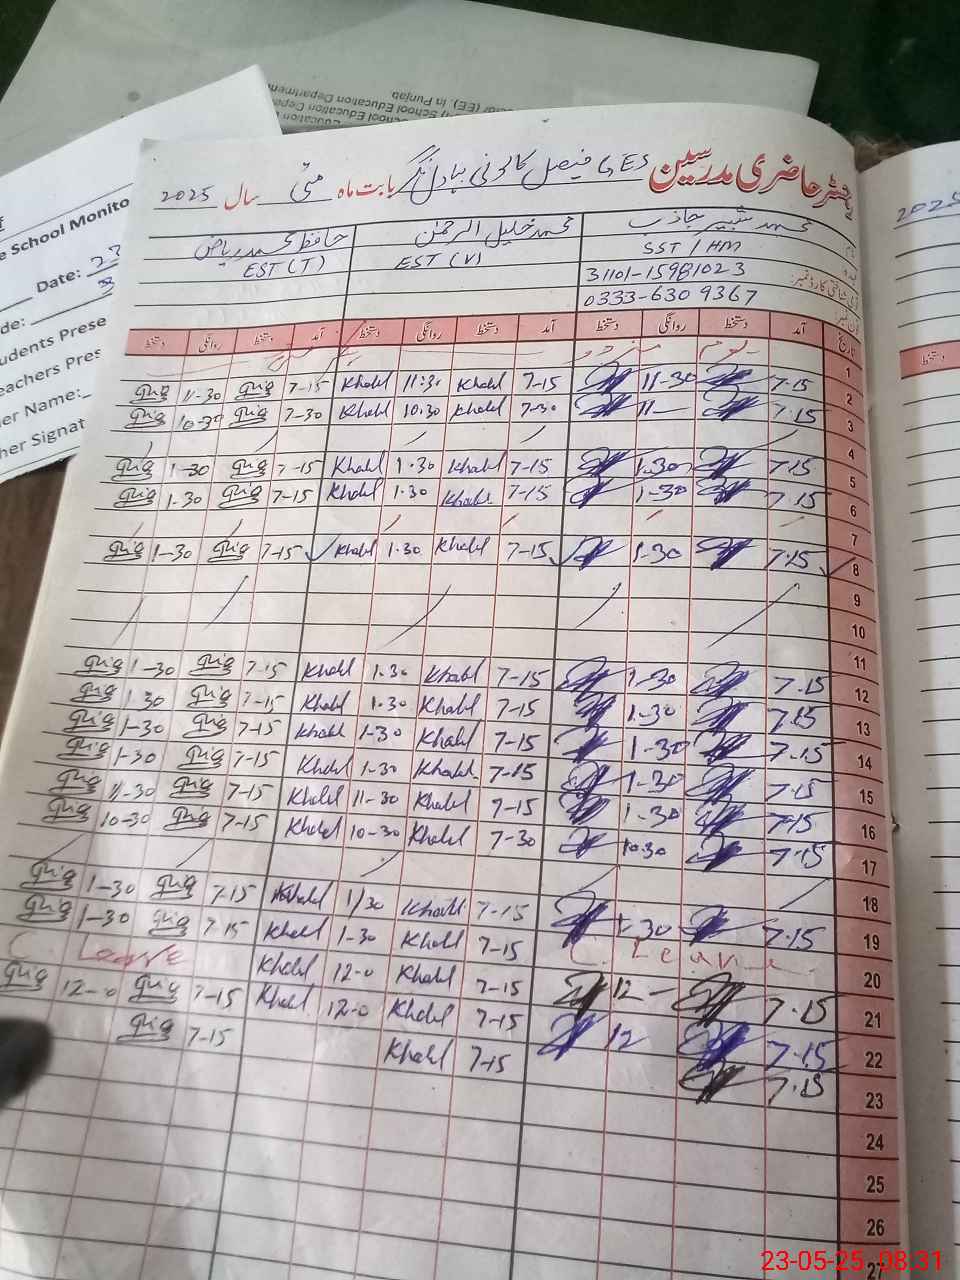 رجسٹر حاضری مدرسین GES فیصل کالونی بابت ماہ مئی سال 2025
محمد شبیر جاذب محمد خلیل الرحمٰن حافظ محمد ریاض
SST / HM EST (V) EST (T)
31101-15981023
شناختی کارڈ نمبر:
0333-6309367
فون نمبر:
تاریخ آمد دستخط روانگی دستخط آمد دستخط روانگی دستخط آمد دستخط روانگی دستخط
1 یوم مزدور
2 7-15 11-30 7-15 Khalil 11:30 Khalil 7-15 11-30
3 7-15 11- 7-30 Khalil 10.30 Khalil 7-30 10-30
4
5 7-15 1.30 7-15 Khalil 1.30 Khalil 7-15 1-30
6 7-15 1-30 7-15 Khalil 1.30 Khalil 7-15 1.30
7
8 7-15 1.30 7-15 Khalil 1.30 Khalil 7-15 1-30
9
10
11
12 7-15 1-30 7-15 Khalil 1.30 Khalil 7-15 1-30
13 7-15 1.30 7-15 Khalil 1.30 Khalil 7-15 1.30
14 7-15 1-30 7-15 Khalil 1-30 Khalil 7-15 1-30
15 7-15 1-30 7-15 Khalil 1-30 Khalil 7-15 1-30
16 7-15 1.30 7-15 Khalil 11-30 Khalil 7-15 11-30
17 7-15 10.30 7-30 Khalil 10-30 Khalil 7-15 10-30
18
19 7-15 1-30 7-15 Khalil 1/30 Khalil 7-15 1-30
20 C. Leave 7-15 Khalil 1-30 Khalil 7-15 1-30
21 7-15 12- 7-15 Khalil 12-0 Khalil C. Leave
22 7-15 12 7-15 Khalil 12-0 Khalil 7-15 12-0
23 7-15 7-15 Khalil 7-15
24
25
26
27
School Monito
Date: 23
de:
udents Prese
eachers Pres
er Name:
her Signat
(EE), in Punjab
School Education Department
2025
دستخط
23-05-25 08:31